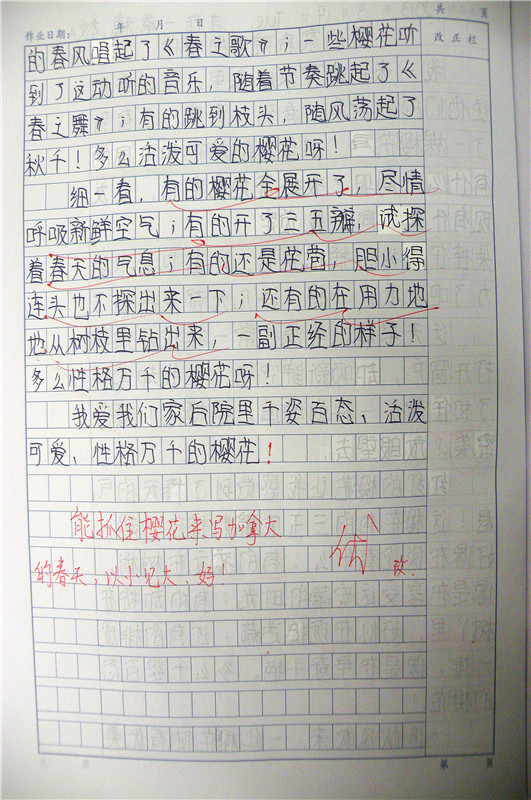 共 页
作业日期: 年 月 日
改正栏
的春风唱起了《春之歌》;一些樱花听
到了这动听的音乐,随着节奏跳起了《
春之舞》;有的跳到枝头,随风荡起了
秋千!多么活泼可爱的樱花呀!
细一看,有的樱花全展开了,尽情
呼吸新鲜空气;有的开了三五瓣,试探
着春天的气息;有的还是花苞,胆小得
连头也不探出来一下;还有的在用力地
地从树枝里钻出来,一副正经的样子!
多么性格万千的樱花呀!
我爱我们家后院里千姿百态、活泼
可爱、性格万千的樱花!
能抓住樱花来写加拿大
的春天,以小见大,好!
优
第 页